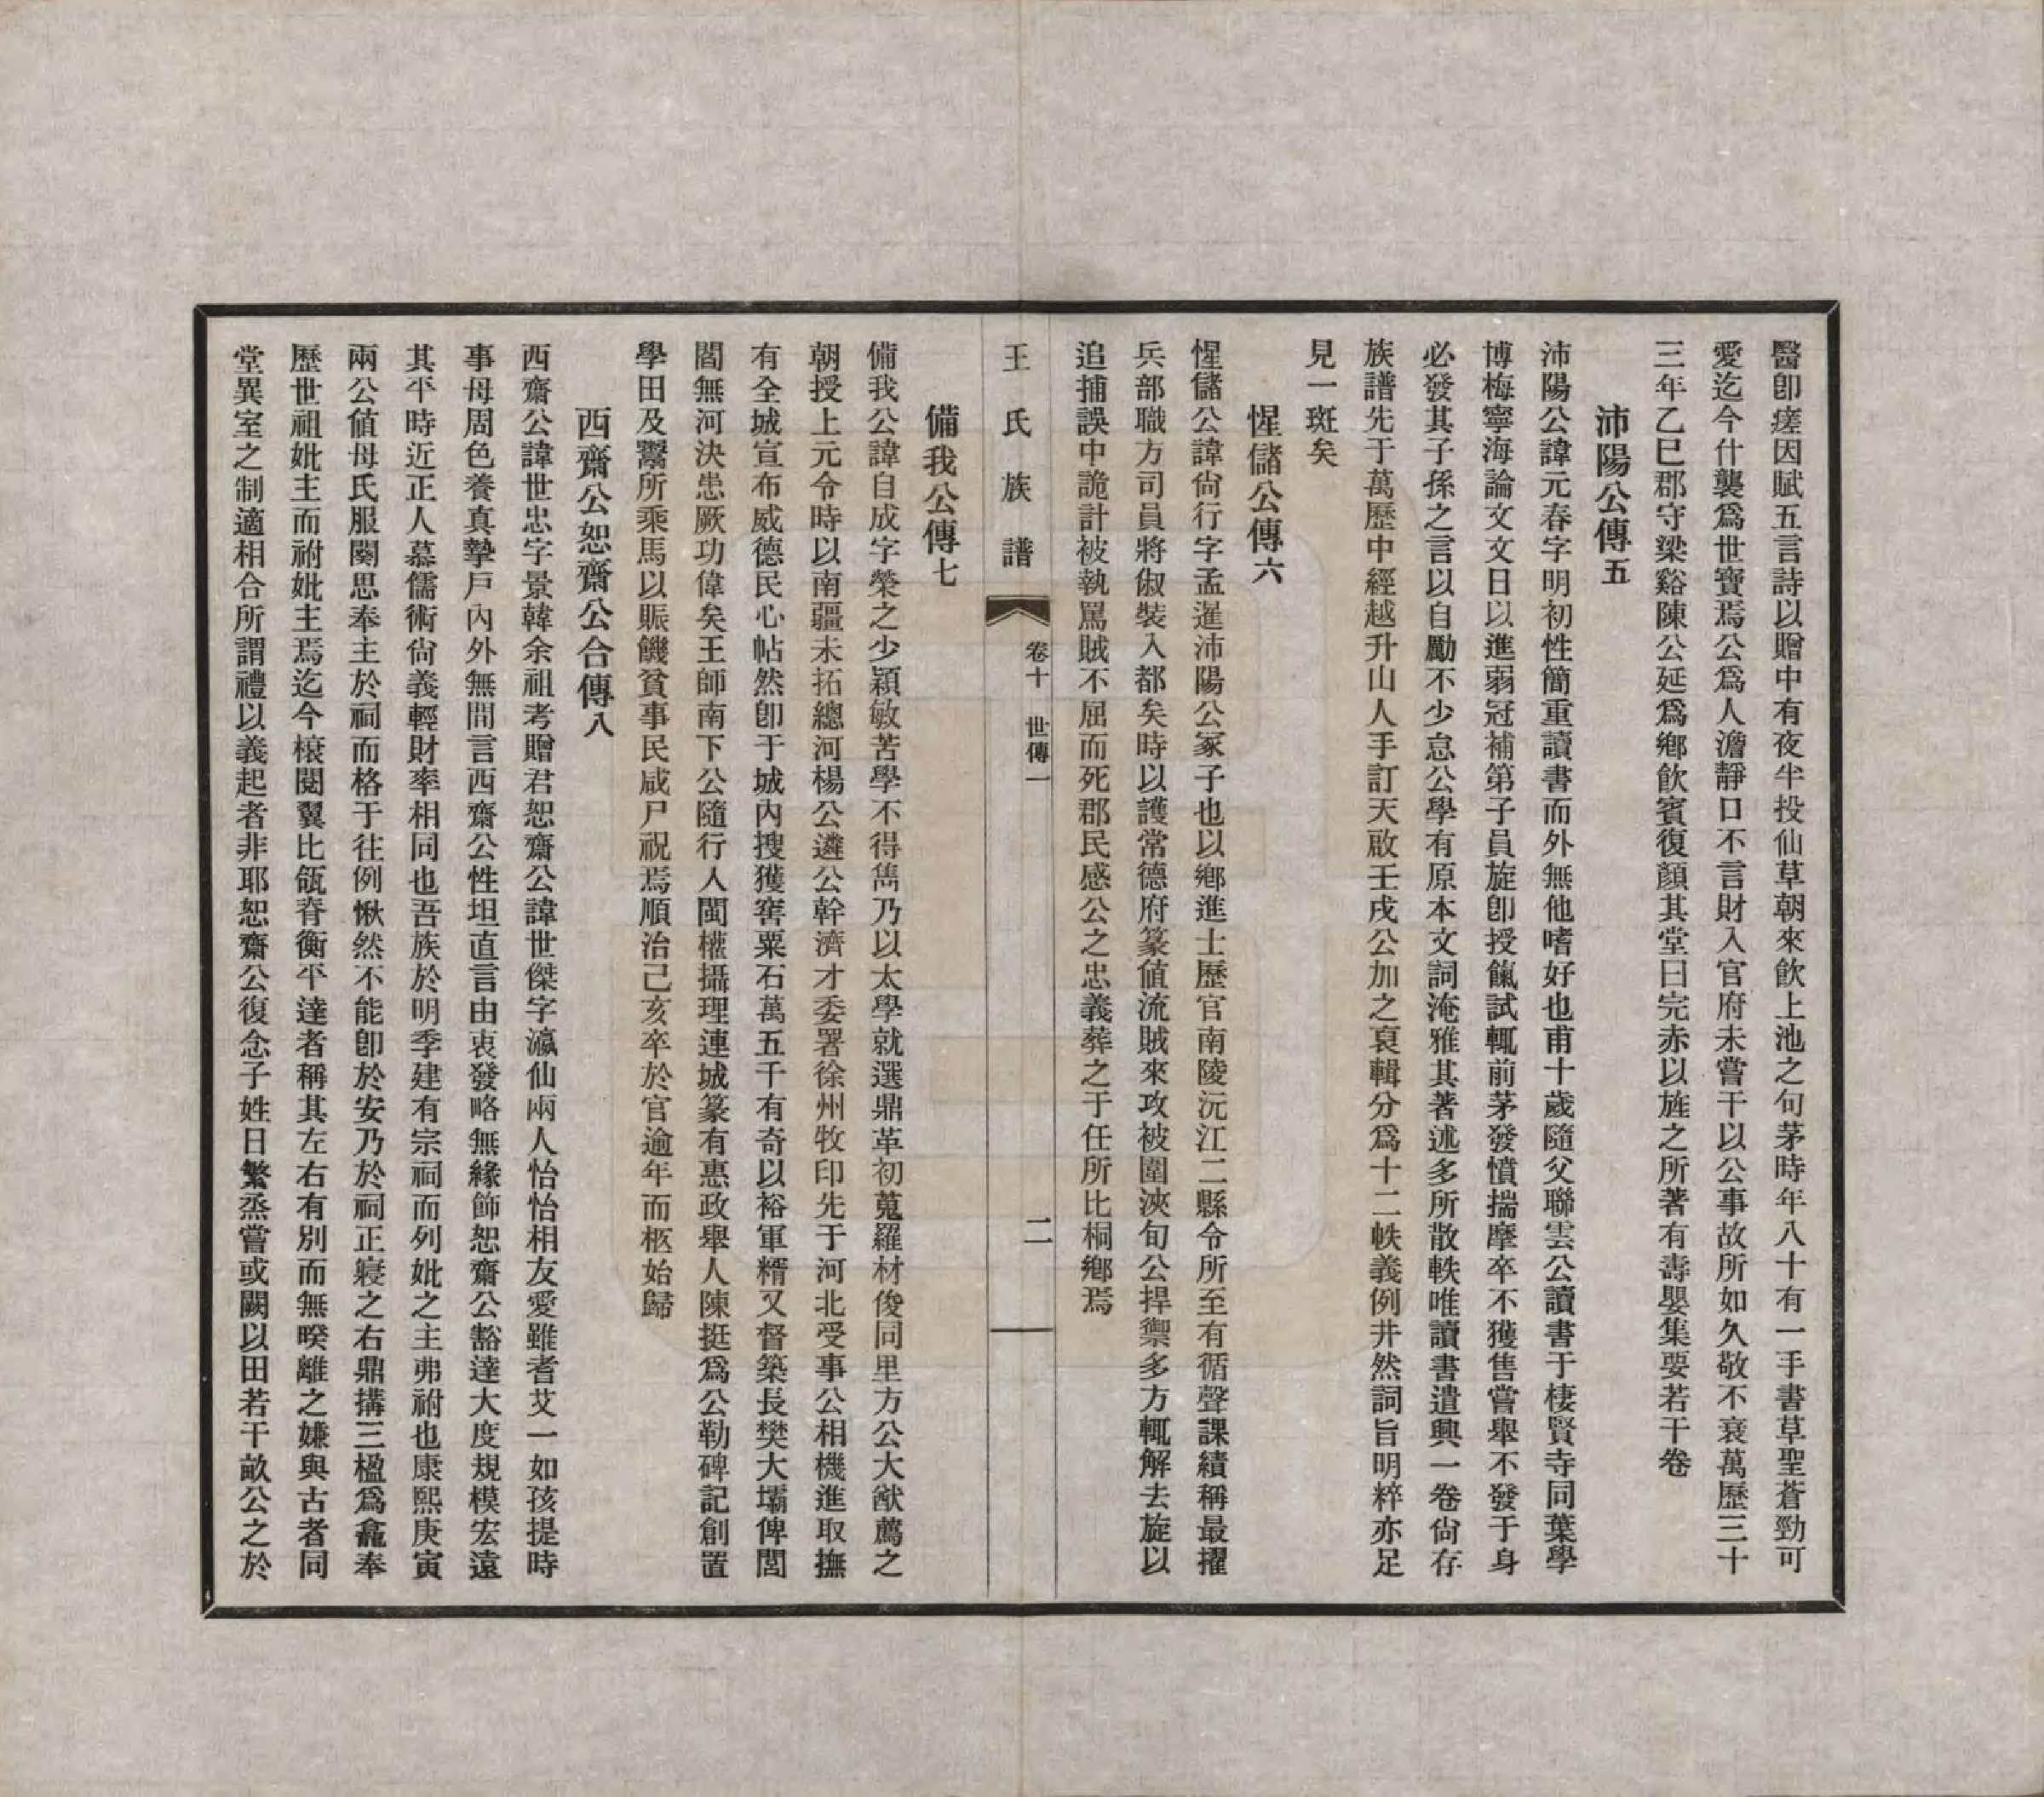 醫卽瘥因賦五言詩以贈中有夜半投仙草朝來飮上池之句茅時年八十有一手書草聖蒼勁可
愛迄今什襲爲世寶焉公爲人澹靜口不言財入官府未嘗干以公事故所如久敬不衰萬歷三十
三年乙巳郡守梁谿陳公延爲鄉飮賓復顏其堂曰完赤以旌之所著有壽嬰集要若干卷
沛陽公傳五
沛陽公諱元春字明初性簡重讀書而外無他嗜好也甫十歲隨父聯雲公讀書于棲賢寺同葉學
博梅寧海論文文日以進弱冠補第子員旋卽授餼試輒前茅發憤揣摩卒不獲售嘗舉不發于身
必發其子孫之言以自勵不少怠公學有原本文詞淹雅其著述多所散軼唯讀書遣興一卷尙存
族譜先于萬歷中經越升山人手訂天啟壬戌公加之裒輯分爲十二帙義例井然詞旨明粹亦足
見一斑矣
惺儲公傳六
惺儲公諱尙行字孟暹沛陽公冢子也以鄉進士歷官南陵沅江二縣令所至有循聲課績稱最擢
兵部職方司員將俶裝入都矣時以護常德府篆値流賊來攻被圍浹旬公捍禦多方輒解去旋以
追捕誤中詭計被執罵賊不屈而死郡民感公之忠義葬之于任所比桐鄉焉
王氏族譜 卷十 世傳一 二
備我公傳七
備我公諱自成字榮之少穎敏苦學不得雋乃以太學就選鼎革初蒐羅材俊同里方公大猷薦之
朝授上元令時以南疆未拓總河楊公遴公幹濟才委署徐州牧印先于河北受事公相機進取撫
有全城宣布威德民心帖然卽于城內搜獲窖粟石萬五千有奇以裕軍糈又督築長樊大壩俾閭
閻無河決患厥功偉矣王師南下公隨行人閩榷攝理連城篆有惠政舉人陳挺爲公勒碑記創置
學田及鬻所乘馬以賑饑貧事民咸尸祝焉順治己亥卒於官逾年而柩始歸
西齋公恕齋公合傳八
西齋公諱世忠字景韓余祖考贈君恕齋公諱世傑字瀛仙兩人怡怡相友愛雖耆艾一如孩提時
事母周色養真摯戶內外無間言西齋公性坦直言由衷發略無緣飾恕齋公豁達大度規模宏遠
其平時近正人慕儒術尙義輕財率相同也吾族於明季建有宗祠而列妣之主弗祔也康熙庚寅
兩公値母氏服闋思奉主於祠而格于往例愀然不能卽於安乃於祠正寢之右鼎搆三楹爲龕奉
歷世祖妣主而祔妣主焉迄今榱閱翼比瓴脊衡平達者稱其左右有別而無暌離之嫌與古者同
堂異室之制適相合所謂禮以義起者非耶恕齋公復念子姓日繁烝嘗或闕以田若干畝公之於